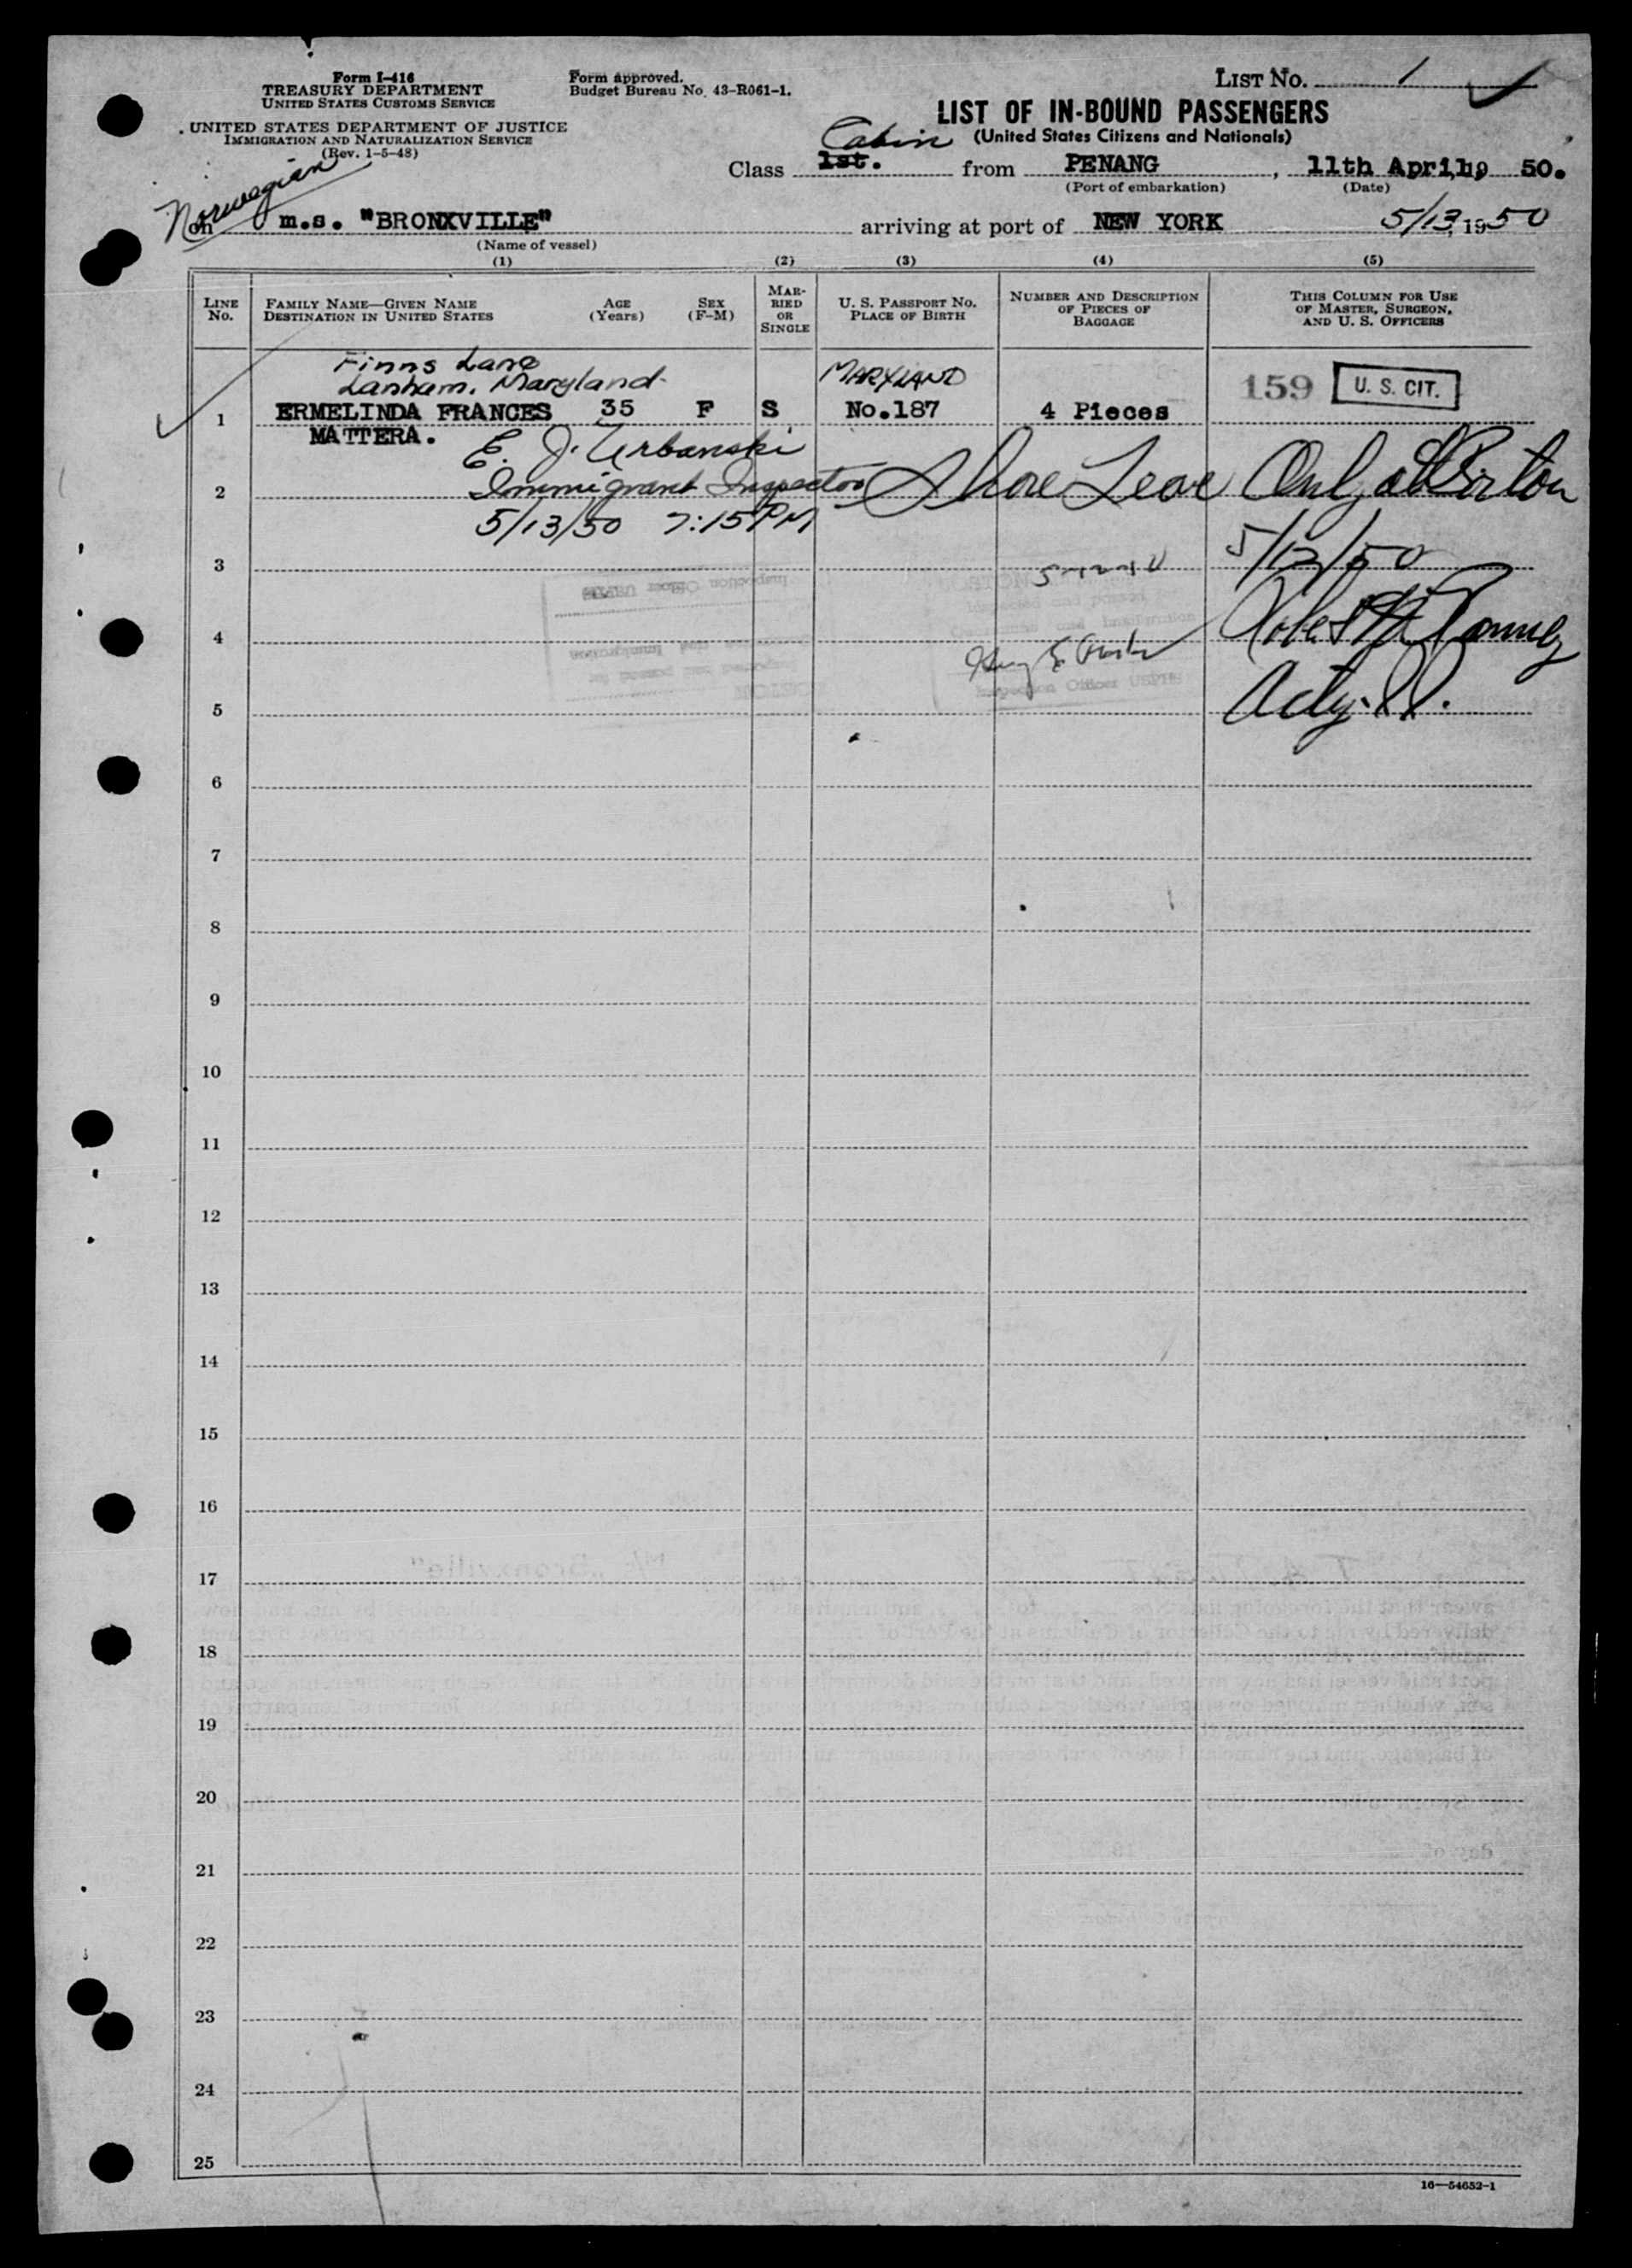 Form I-416
TREASURY DEPARTMENT
UNITED STATES CUSTOMS SERVICE
UNITED STATES DEPARTMENT OF JUSTICE
IMMIGRATION AND NATURALIZATION SERVICE
(Rev. 1-5-48)
Form approved.
Budget Bureau No. 43-R061-1.
LIST NO. 1
LIST OF IN-BOUND PASSENGERS
(United States Citizens and Nationals)
Cabin
Class 1st. from PENANG, 11th April, 19 50.
(Port of embarkation) (Date)
Norwegian
on m.s. "BRONXVILLE" arriving at port of NEW YORK 5/13, 1950
(Name of vessel)
(1) (2) (3) (4) (5)
LINE NO.
FAMILY NAME—GIVEN NAME
DESTINATION IN UNITED STATES
AGE
(Years)
SEX
(F-M)
MAR-
RIED
OR
SINGLE
U. S. PASSPORT NO.
PLACE OF BIRTH
NUMBER AND DESCRIPTION
OF PIECES OF
BAGGAGE
THIS COLUMN FOR USE
OF MASTER, SURGEON,
AND U. S. OFFICERS
Finns Lane
Lanham, Maryland. MARYLAND
1 ERMELINDA FRANCES 35 F S No.187 4 Pieces 159 U. S. CIT.
MATTERA.
E. J. Urbanski
2 Immigrant Inspector Shore Leave Only at Boston
5/13/50 7:15 PM
3 5/12/50
4
5
6
7
8
9
10
11
12
13
14
15
16
17
18
19
20
21
22
23
24
25
16—54652-1